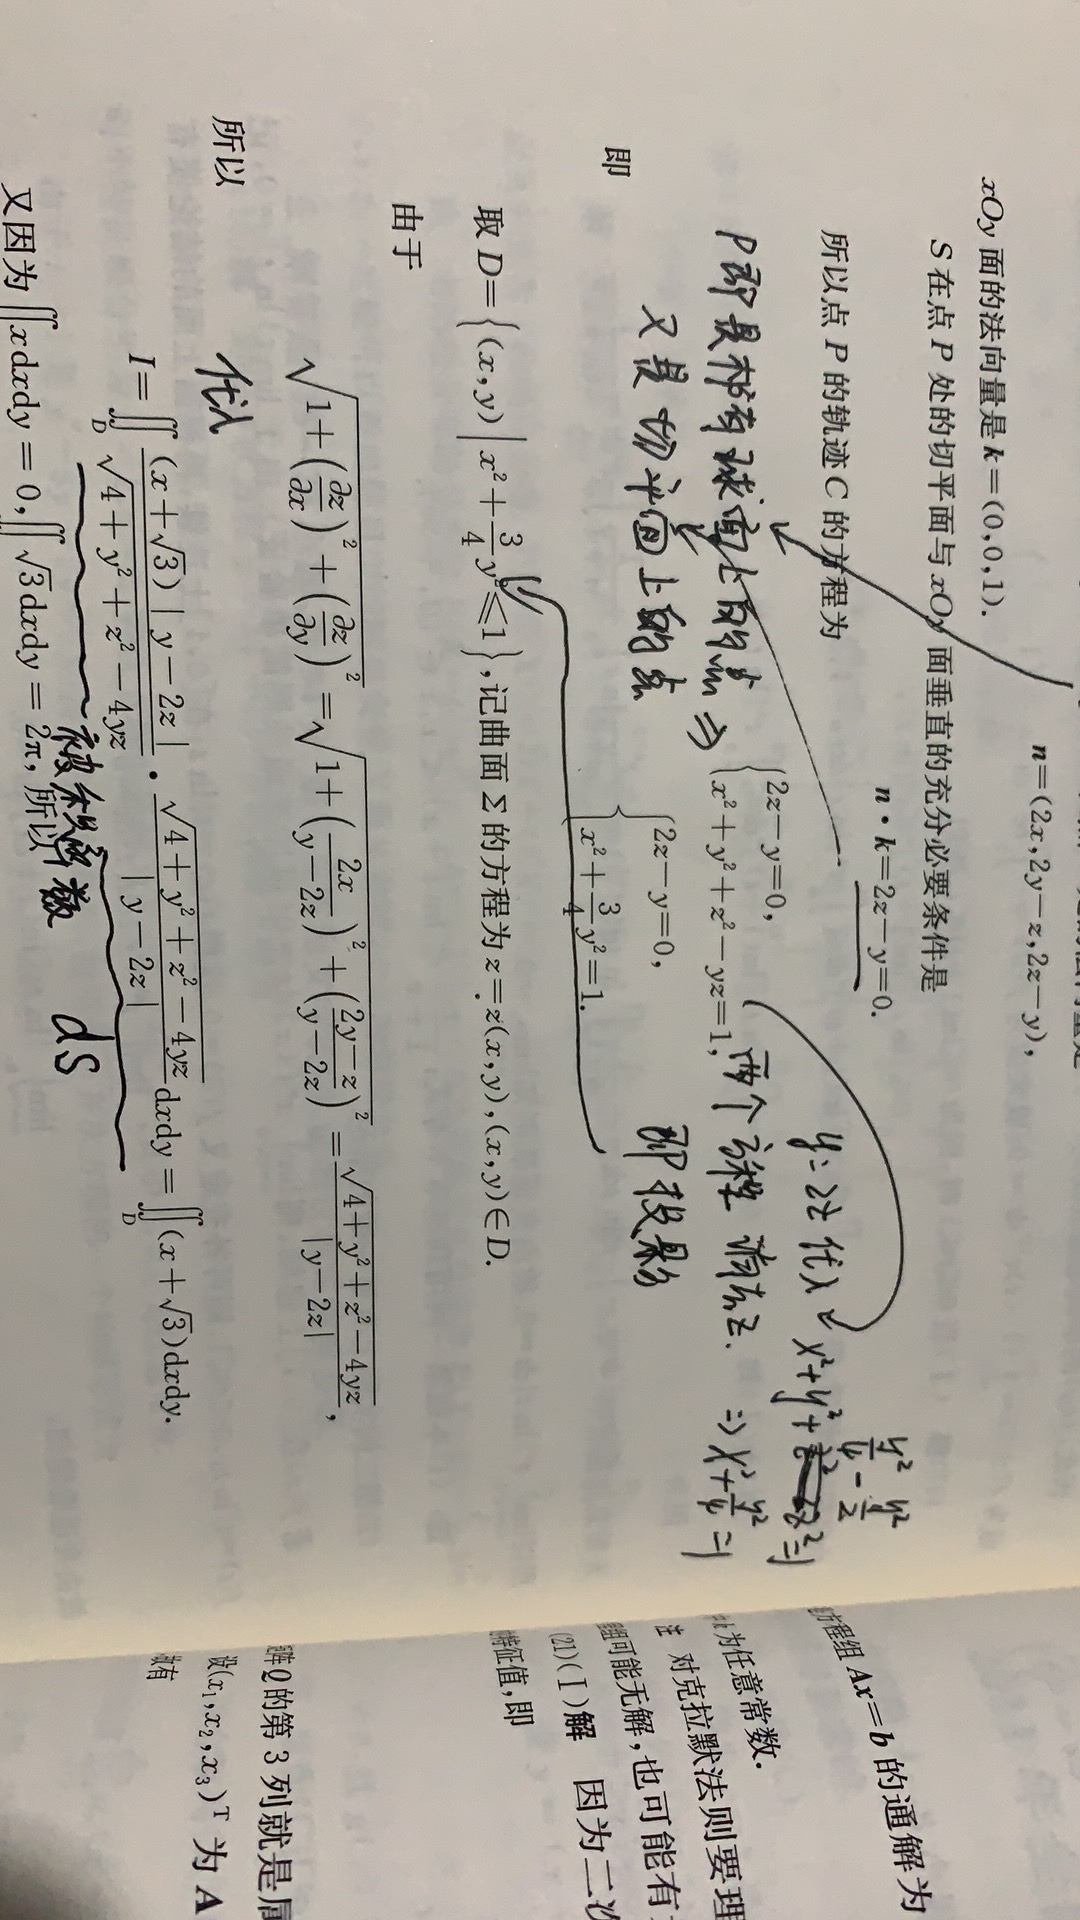 n=(2x,2y-z,2z-y),
xOy 面的法向量是 k=(0,0,1).
S 在点 P 处的切平面与 xOy 面垂直的充分必要条件是
n·k=2z-y=0.
y=2z 代入 x²+y²+ y²/4 - y²/2 =1
所以点 P 的轨迹 C 的方程为
P即是椭球面上的点 ⇒ {2z-y=0, x²+y²+z²-yz=1, 两个方程消去z.
又是切平面上的点
即投影
即 {2z-y=0, x²+\frac{3}{4}y²=1.
取 D={(x,y)|x²+\frac{3}{4}y²≤1},记曲面 Σ 的方程为 z=z(x,y),(x,y)∈D.
由于
\sqrt{1+(\frac{∂z}{∂x})²+(\frac{∂z}{∂y})²}=\sqrt{1+(\frac{2x}{y-2z})²+(\frac{2y-z}{y-2z})²}=\frac{\sqrt{4+y²+z²-4yz}}{|y-2z|},
所以
代入
I=∬_D \frac{(x+\sqrt{3})|y-2z|}{\sqrt{4+y²+z²-4yz}}·\frac{\sqrt{4+y²+z²-4yz}}{|y-2z|}dxdy=∬_D(x+\sqrt{3})dxdy.
被积函数 dS
又因为∬xdxdy=0,∬\sqrt{3}dxdy=2π,所以
方程组 Ax=b 的通解为
为任意常数.
注 对克拉默法则要理
组可能无解,也可能有
(21)(Ⅰ)解 因为二次
特征值,即
Q的第 3 列就是属
设(x₁,x₂,x₃)ᵀ 为 A
故有